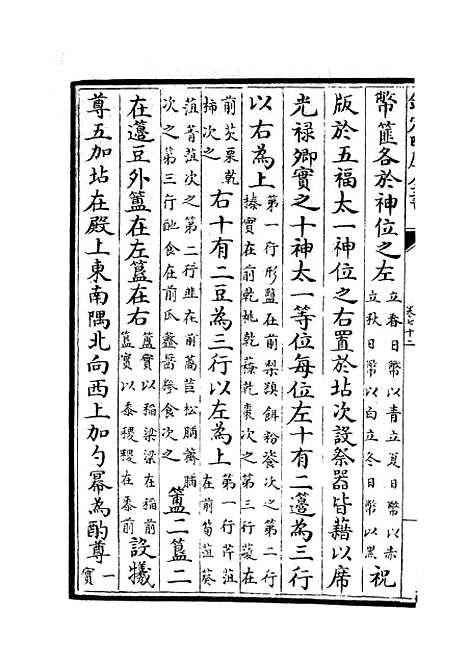 卷七十二
幣篚各於神位之左立春日幣以青立夏日幣以赤立秋日幣以白立冬日幣以黑祝
版於五福太一神位之右置於坫次設祭器皆藉以席
光禄卿實之十神太一等位每位左十有二籩為三行
以右為上第一行形鹽在前梨糗餌粉餈次之第二行榛實在前乾桃乾乾棗次之第三行菱在
前芡栗乾柿次之右十有二豆為三行以左為上第一行芹菹在前筍菹葵
菹菁菹次之第二行韭在前萵苣松脯蘑脯次之第三行酏食在前瓜虀醬糝食次之簠二簋二
在籩豆外簠在左簋在右簠實以稻粱粱在稻前簋實以黍稷稷在黍前設犧
尊五加坫在殿上東南隅北向西上加勺冪為酌尊一實